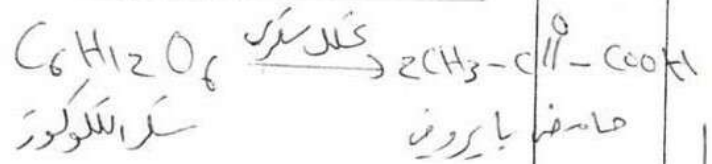 C6H12O6 تحلل سكري → 2CH3-C-COOH
O
سكر الكلوكوز حامض بايروفيك